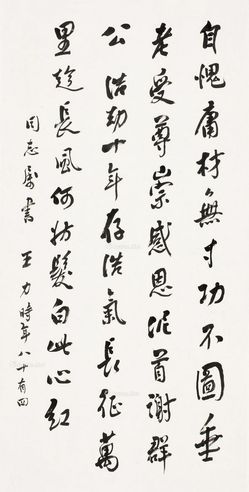 自愧庸材無寸功不圖垂
老受尊崇感恩泥首謝群
公浩劫十年存浩氣長征萬
里趁長風何妨髮白此心紅
同志屬書 王力時年八十有四